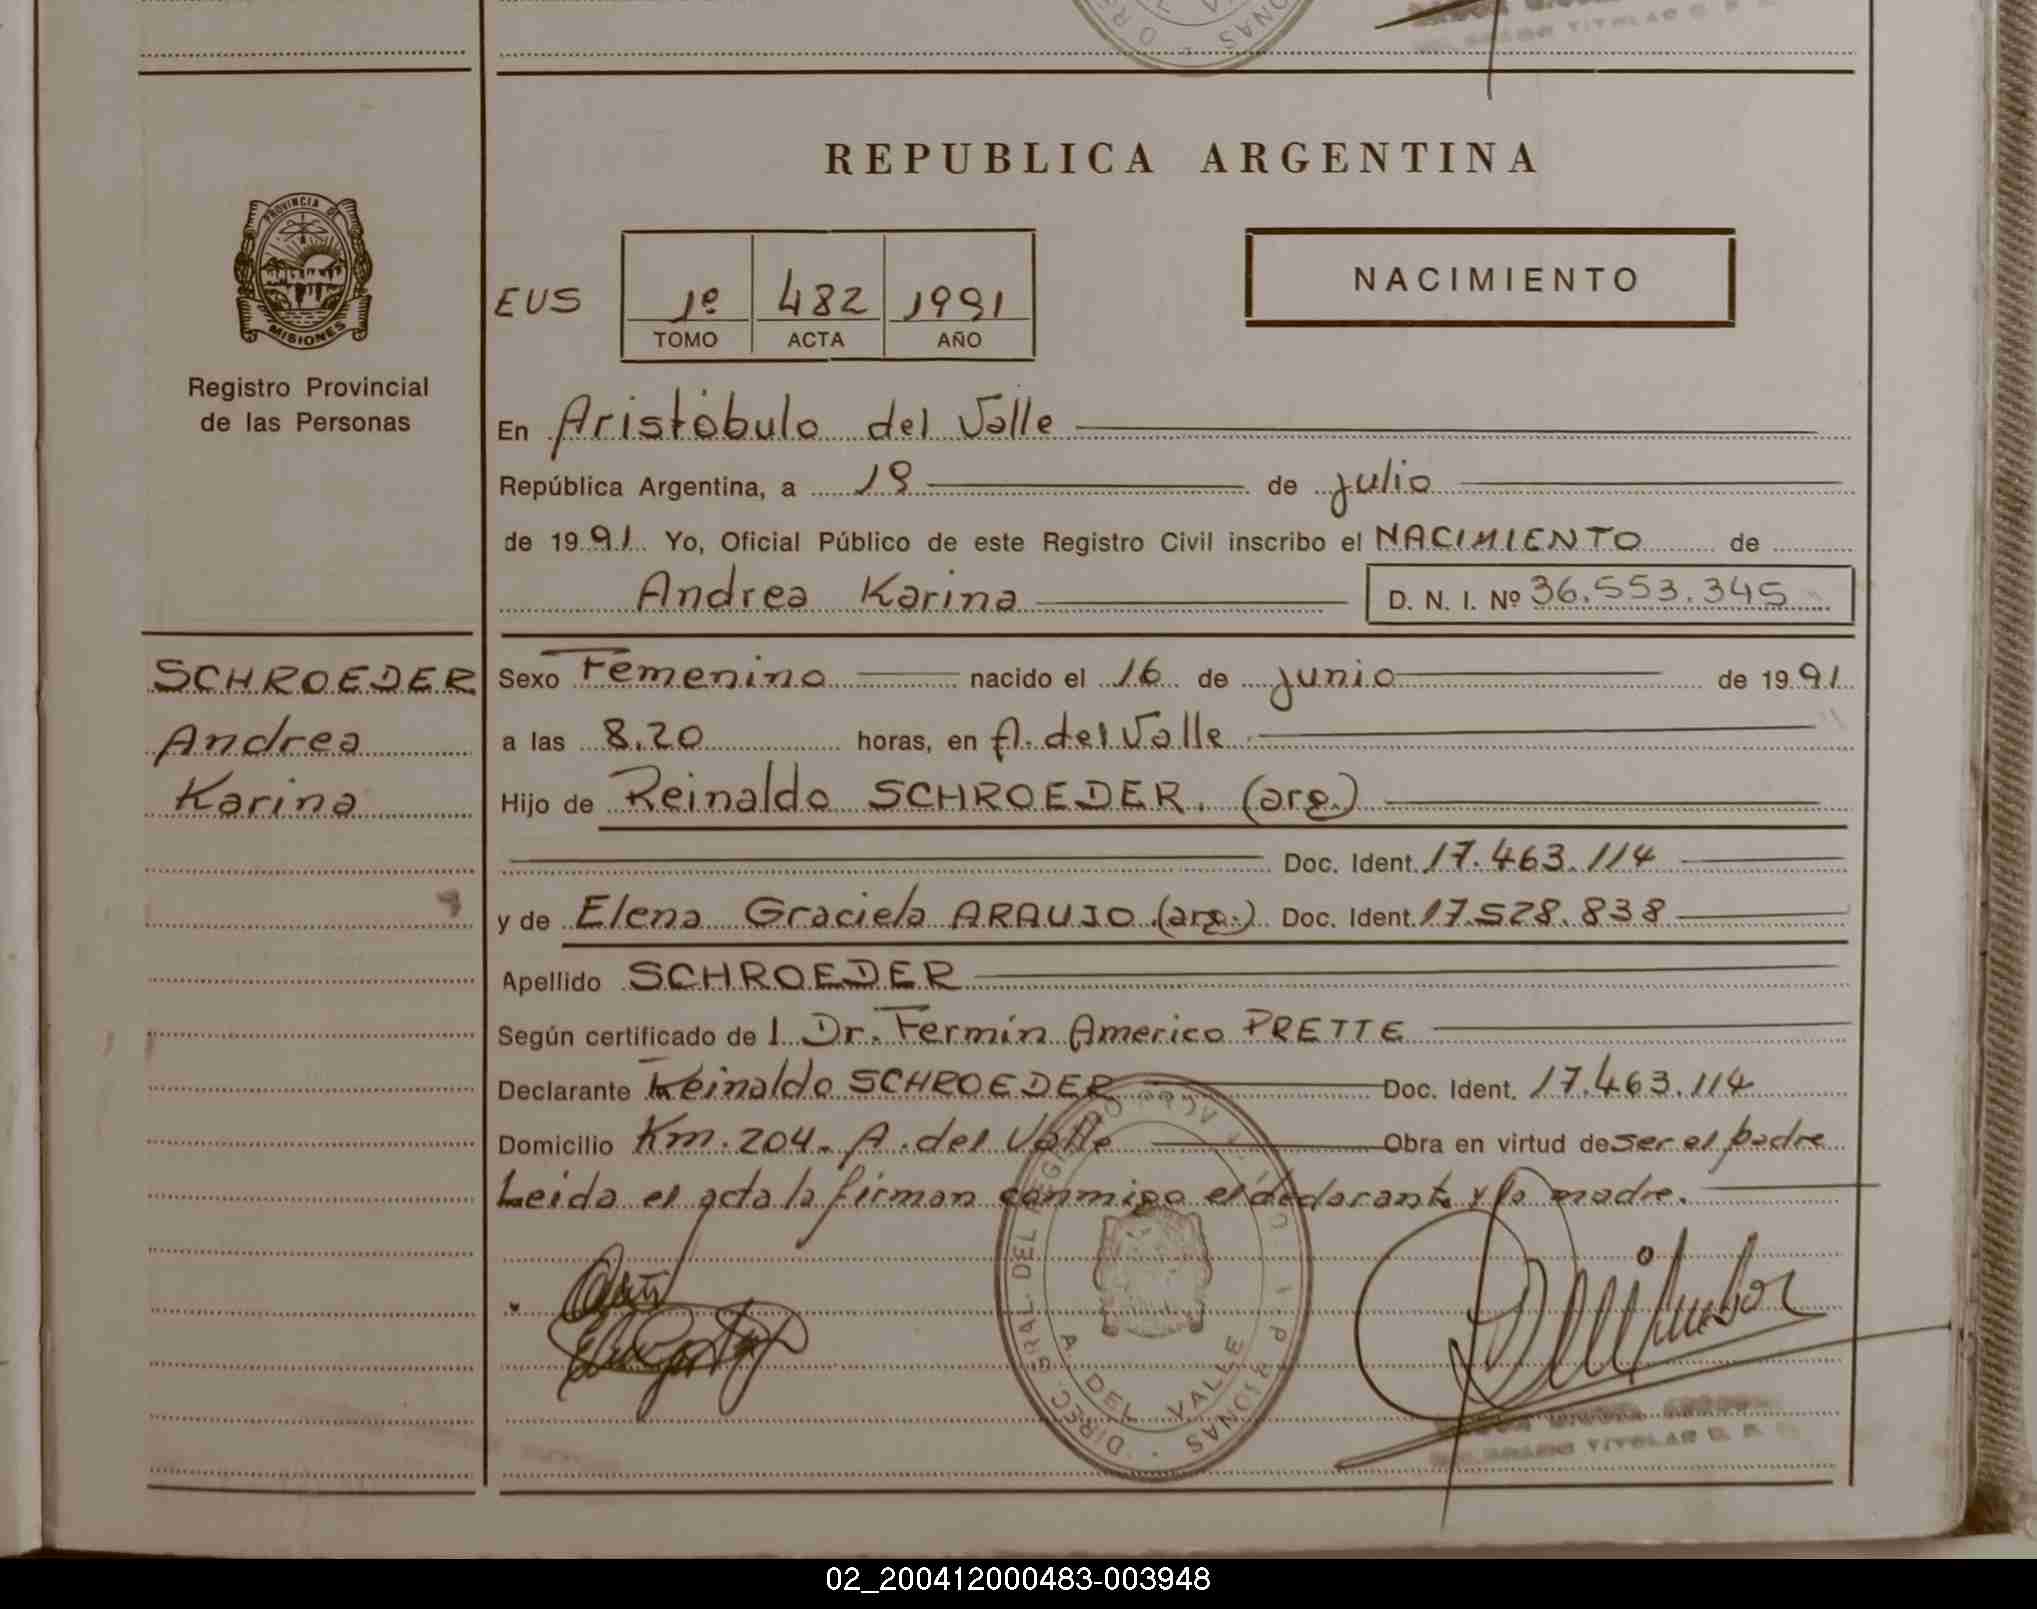 REPUBLICA ARGENTINA
PROVINCIA DE
MISIONES
Registro Provincial
de las Personas
NACIMIENTO
EUS 1º 482 1991
TOMO ACTA AÑO
En Aristóbulo del Valle
República Argentina, a 19 de julio
de 1991 Yo, Oficial Público de este Registro Civil inscribo el NACIMIENTO de
Andrea Karina D. N. I. Nº 36.553.345
SCHROEDER
Andrea
Karina
Sexo Femenino nacido el 16 de junio de 1991
a las 8.20 horas, en A. del Valle
Hijo de Reinaldo SCHROEDER. (arg.)
Doc. Ident. 17.463.114
y de Elena Graciela ARAUJO (arg.) Doc. Ident. 17.528.838
Apellido SCHROEDER
Según certificado de l Dr. Fermín Americo PRETTE
Declarante Reinaldo SCHROEDER Doc. Ident. 17.463.114
Domicilio Km. 204. A. del Valle Obra en virtud de ser el padre
Leida el acta la firman conmigo el declarante y la madre.
DIREC. GRAL. DEL REGISTRO
A. DEL VALLE
02_200412000483-003948